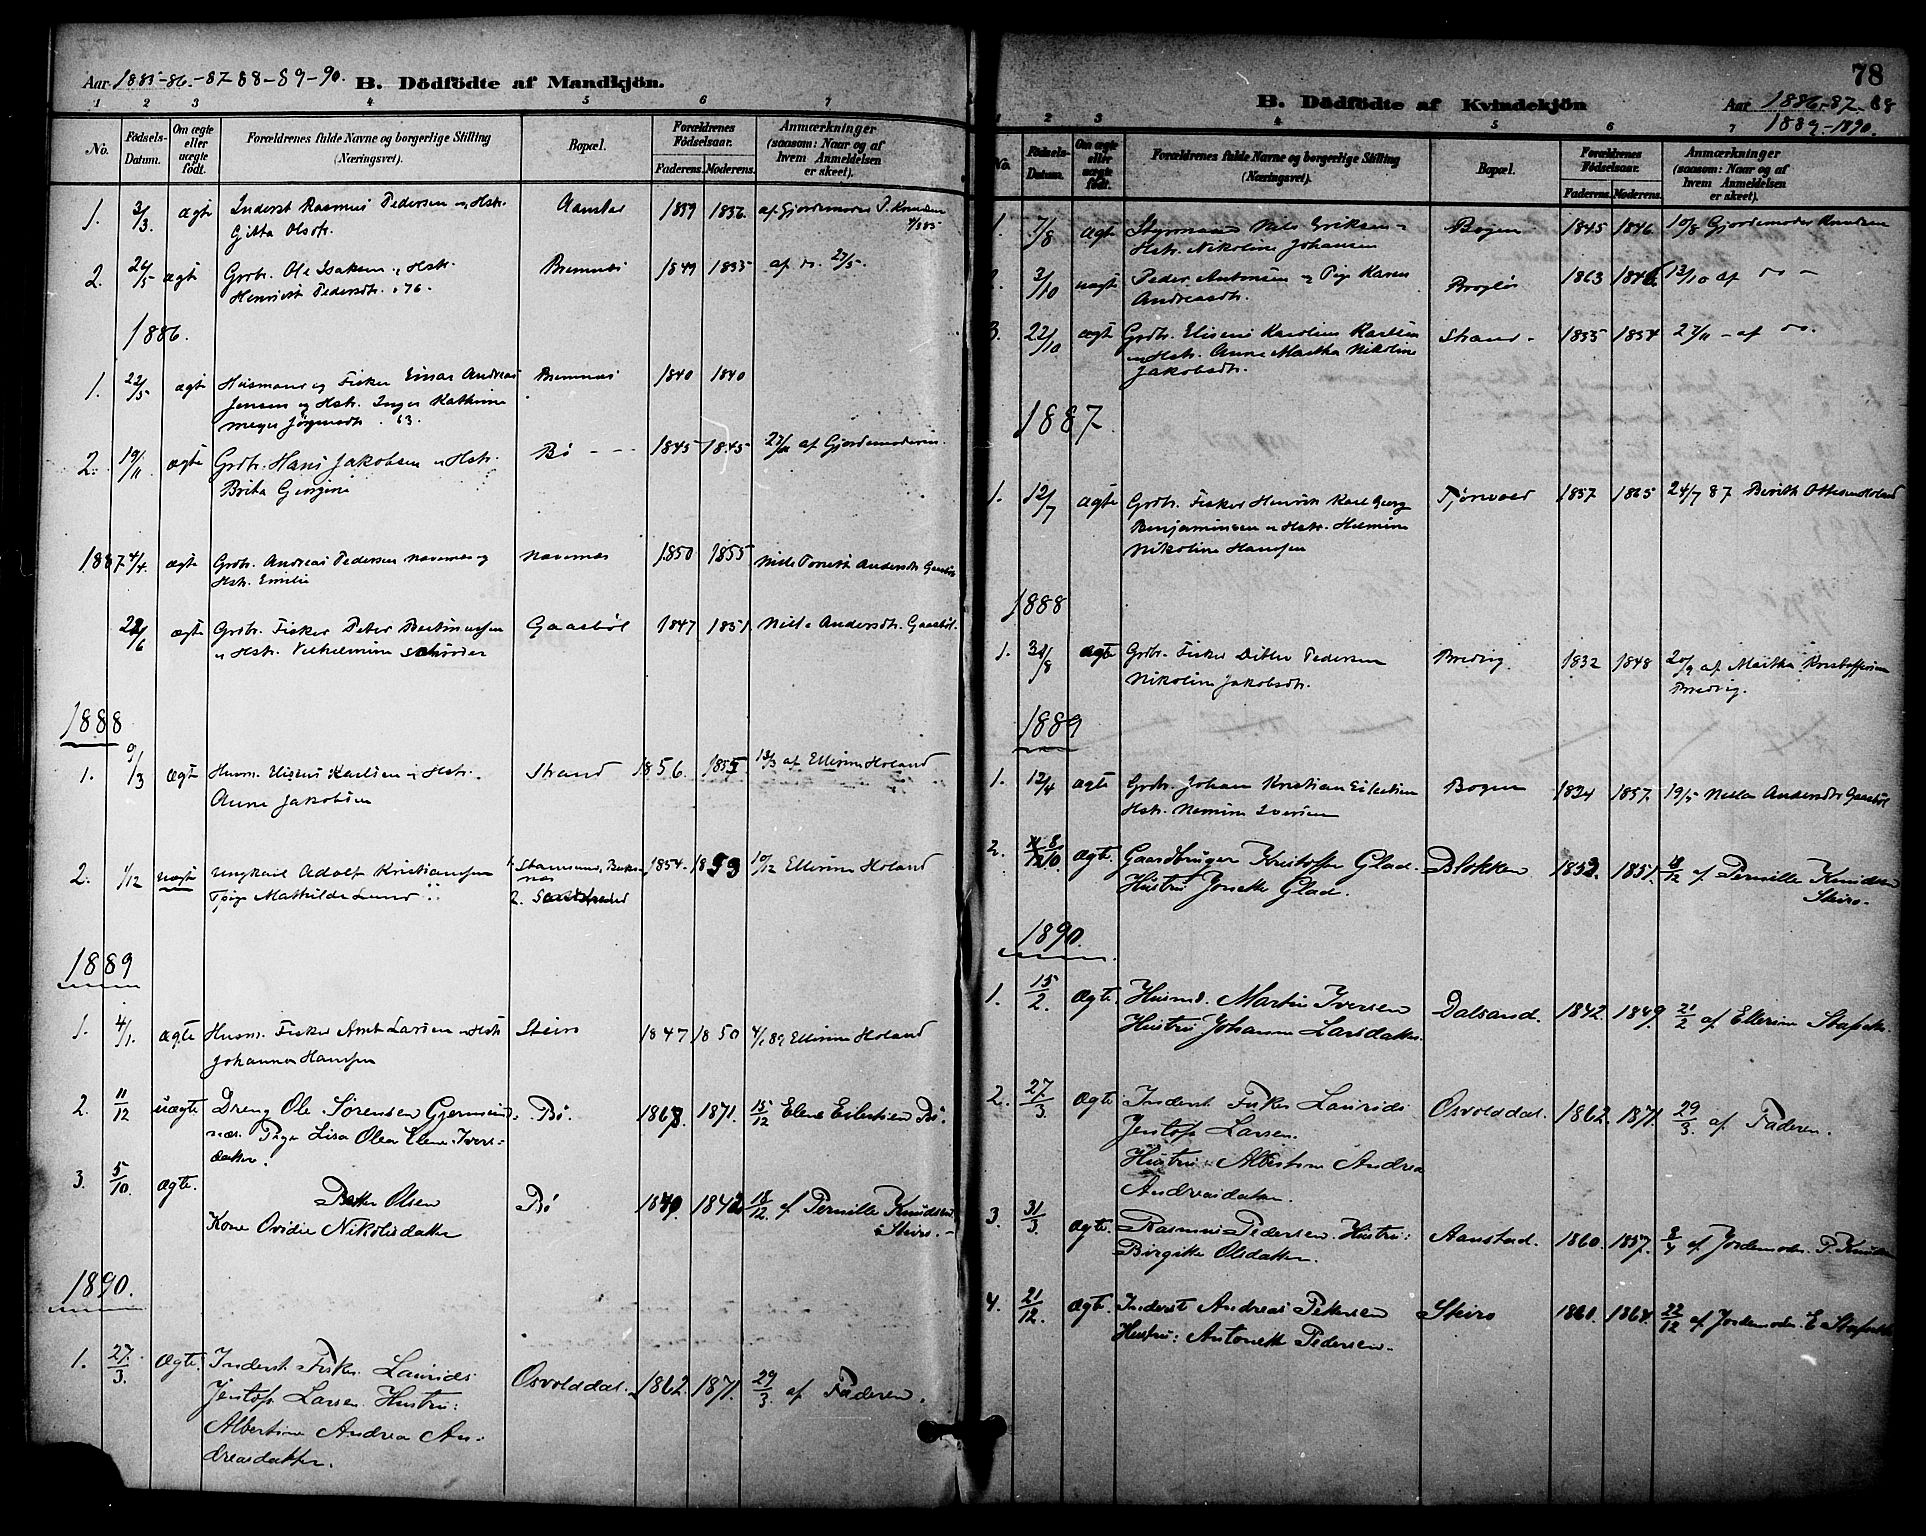 Aar 1885-86-87-88-89-90. B. Dödfödte af Mandkjön.
1 2 3 4 5 6 7
No. Födsels-Datum. Om ægte eller uægte födt. Forældrenes fulde Navne og borgerlige Stilling (Næringsvei). Bopæl. Forældrenes Födselsaar. Faderens. Moderens. Anmærkninger (saasom: Naar og af hvem Anmeldelsen er skeet).
1. 3/3. ægte Inderst Rasmus Pedersen og Hstr. Aanstad 1859 1856 af Gjordemoder P. Knudsen
Gitta Olsdtr.
2. 26/5 ægte Grdbr. Ole Isaksen og Hstr. Bremnes 1849 1855 af do. 27/5.
Henriette Pedersdtr. 76.
1886.
1. 22/5 ægte Husmand og Fisker Einar Andreas Bremnes 1840 1840
Jensen og Hstr. Inger Kathrine
Meyer Jørgensdtr. 63.
2. 19/11 ægte Grdbr. Hans Jakobsen og Hstr. Bø 1845 1845 27/11 af Gjordemoderen
Brita Georgine
1887 4/4. ægte Grdbr. Andreas Pedersen Navnnes og Navnnes 1850 1855 Andersdtr. Gaasbøl
Hstr. Emilie
22/6 ægte Grdbr. Fisker Peter Gaasbøl 1847 1851 Andersdtr. Gaasbøl.
og Hstr. Vilhelmine Schrøder
1888
1. 9/3 ægte Husm. Eliseus Karlsen og Hstr. Strand 1856. 1855 13/3 af Ellerine Holand
Anne Jakobsen
2. 1/12 uægte Ungkarl Adolf Kristiansen 1. Stamsund, Buksnes 1854. 1853 10/12 Ellerine Holand
Pige Mathilde Lund 2.
1889
1. 4/1. ægte Husm. Fisker Arnt Larsen og Hstr. Steiro 1847 1850 4/1 89 Ellerine Holand
Johanna Hansen
2. 11/12 uægte Dreng Ole Sørensen Gjermund- Bø. 1868. 1871. 15/12 Elene Eilertsen Bø.
næs. Pige Lisa Olea Elene Ivers-
datter.
3. 5/10 ægte.
Peder Olsen Bø 1842 18/12. af Pernille Knudsen
Kone Ovidie Nikolaisdatter Steiro.
1890.
1. 27/3. Ægte. Inderst Fisker Laurids Osvolddal. 1862. 1871. 29/3. af Faderen.
Jentoft Larsen Hustru:
Albertine Andrea An-
dreasdatter.
78
B. Dödfödte af Kvindekjön Aar 1886-87-88
1889-1890.
1 2 3 4 5 6 7
No. Födsels-Datum. Om ægte eller uægte födt. Forældrenes fulde Navne og borgerlige Stilling (Næringsvei). Bopæl. Forældrenes Födselsaar. Faderens. Moderens. Anmærkninger (saasom: Naar og af hvem Anmeldelsen er skeet).
1. 7/8 ægte Styrmand Nils Eriksen og Bogen 1845 1846 10/8 Gjordemoder Knudsen
Hstr. Nikoline Johansen
2. 3/10 uægte Peder Antonsen og Pige Karen 1863 1846 13/10 af do -
Andreasdtr.
3. 22/10 ægte Grdbr. Eliseus Karolius Karlsen Strand. 1855 1854 27/11 - af do.
og Hstr. Anne Martha Nikoline
Jakobsdtr.
1887
1. 12/7 ægte Grdbr. Fisker Henrik Karl Georg 1857 1865 24/7 87 Berith Ottesen Holand
Benjaminsen og Hstr. Helmine
Nikoline Hansen
1888
1. 31/8 ægte Grdbr. Fisker Ditlev Pedersen Bredvig. 1832 1848 20/9 af Martha Kristoffersen
Nikoline Jakobsdtr. Bredvig.
1889
1. 12/4 ægte Grdbr. Johan Kristian Eilertsen Bogen 1824 1857. 19/5 Andersdtr Gaasbøl
Hstr. Iversen
2. 8/10 ægte. Gaardbruger Kristoffer Glad. Blokken 1852. 1851. 18/12 af Pernille Knudsen
Hustru Jonette Glad. Steiro.
1890.
1. 15/2 Ægte. Husmd. Martin Iversen Dalsand. 1842. 1849. 21/2 af Ellerine
Hustru Johanna Larsdatter.
2. 27/3. Ægte. Inderst Fisker Laurids Osvolddal. 1862. 1871. 29/3. af Faderen.
Jentoft Larsen.
Hustru: Albertine Andrea
Andreasdatter.
3. 31/3 Ægte. Rasmus Pedersen. Hustru: Aanstad. 1860. 1857. 8/4 af Jordemoder P. Knudsen
Birgitte Olsdatter.
4. 21/12. Ægte. Inderst Andreas Petersen Steiro 1860. 1864. 22/12 af Jordemoder. E.
Hustru: Antonette Pedersen.